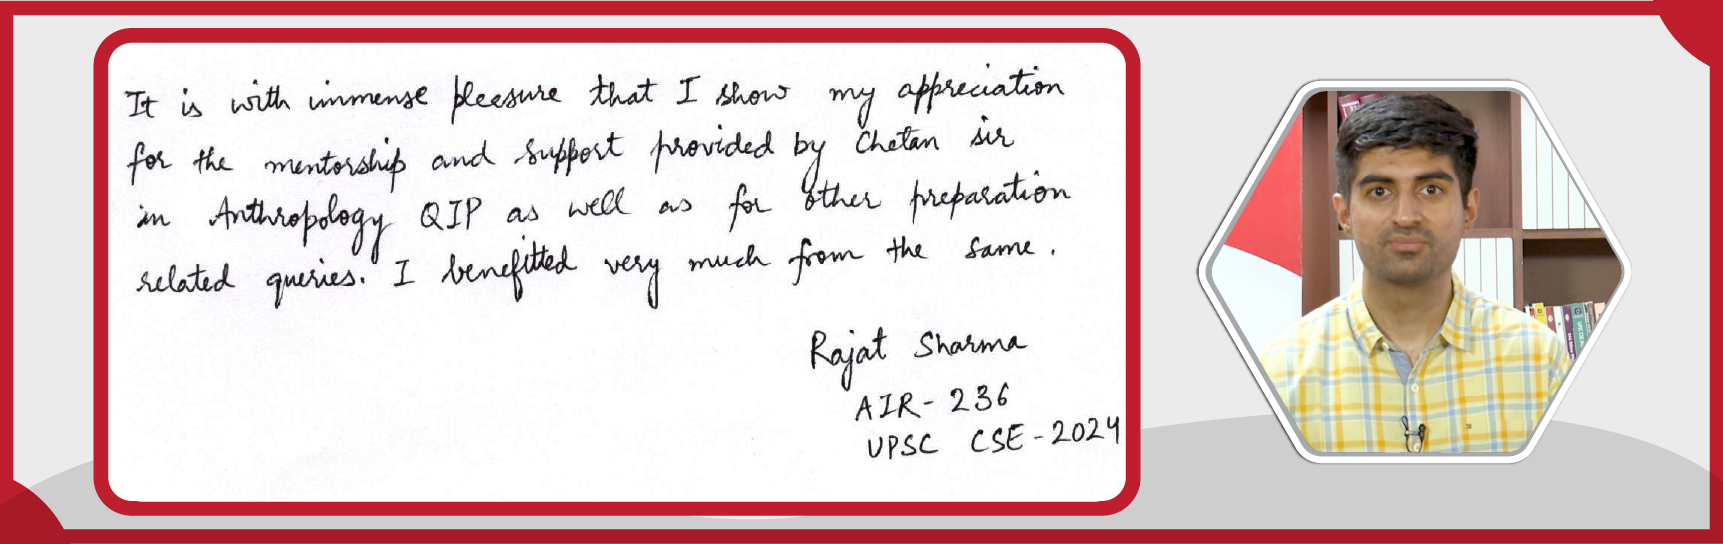 It is with immense pleesure that I show my appreciation
for the mentorship and support provided by Chetan sir
in Anthropology QIP as well as for other preparation
related queries. I benefitted very much from the same.
Rajat Sharma
AIR - 236
UPSC CSE - 2024